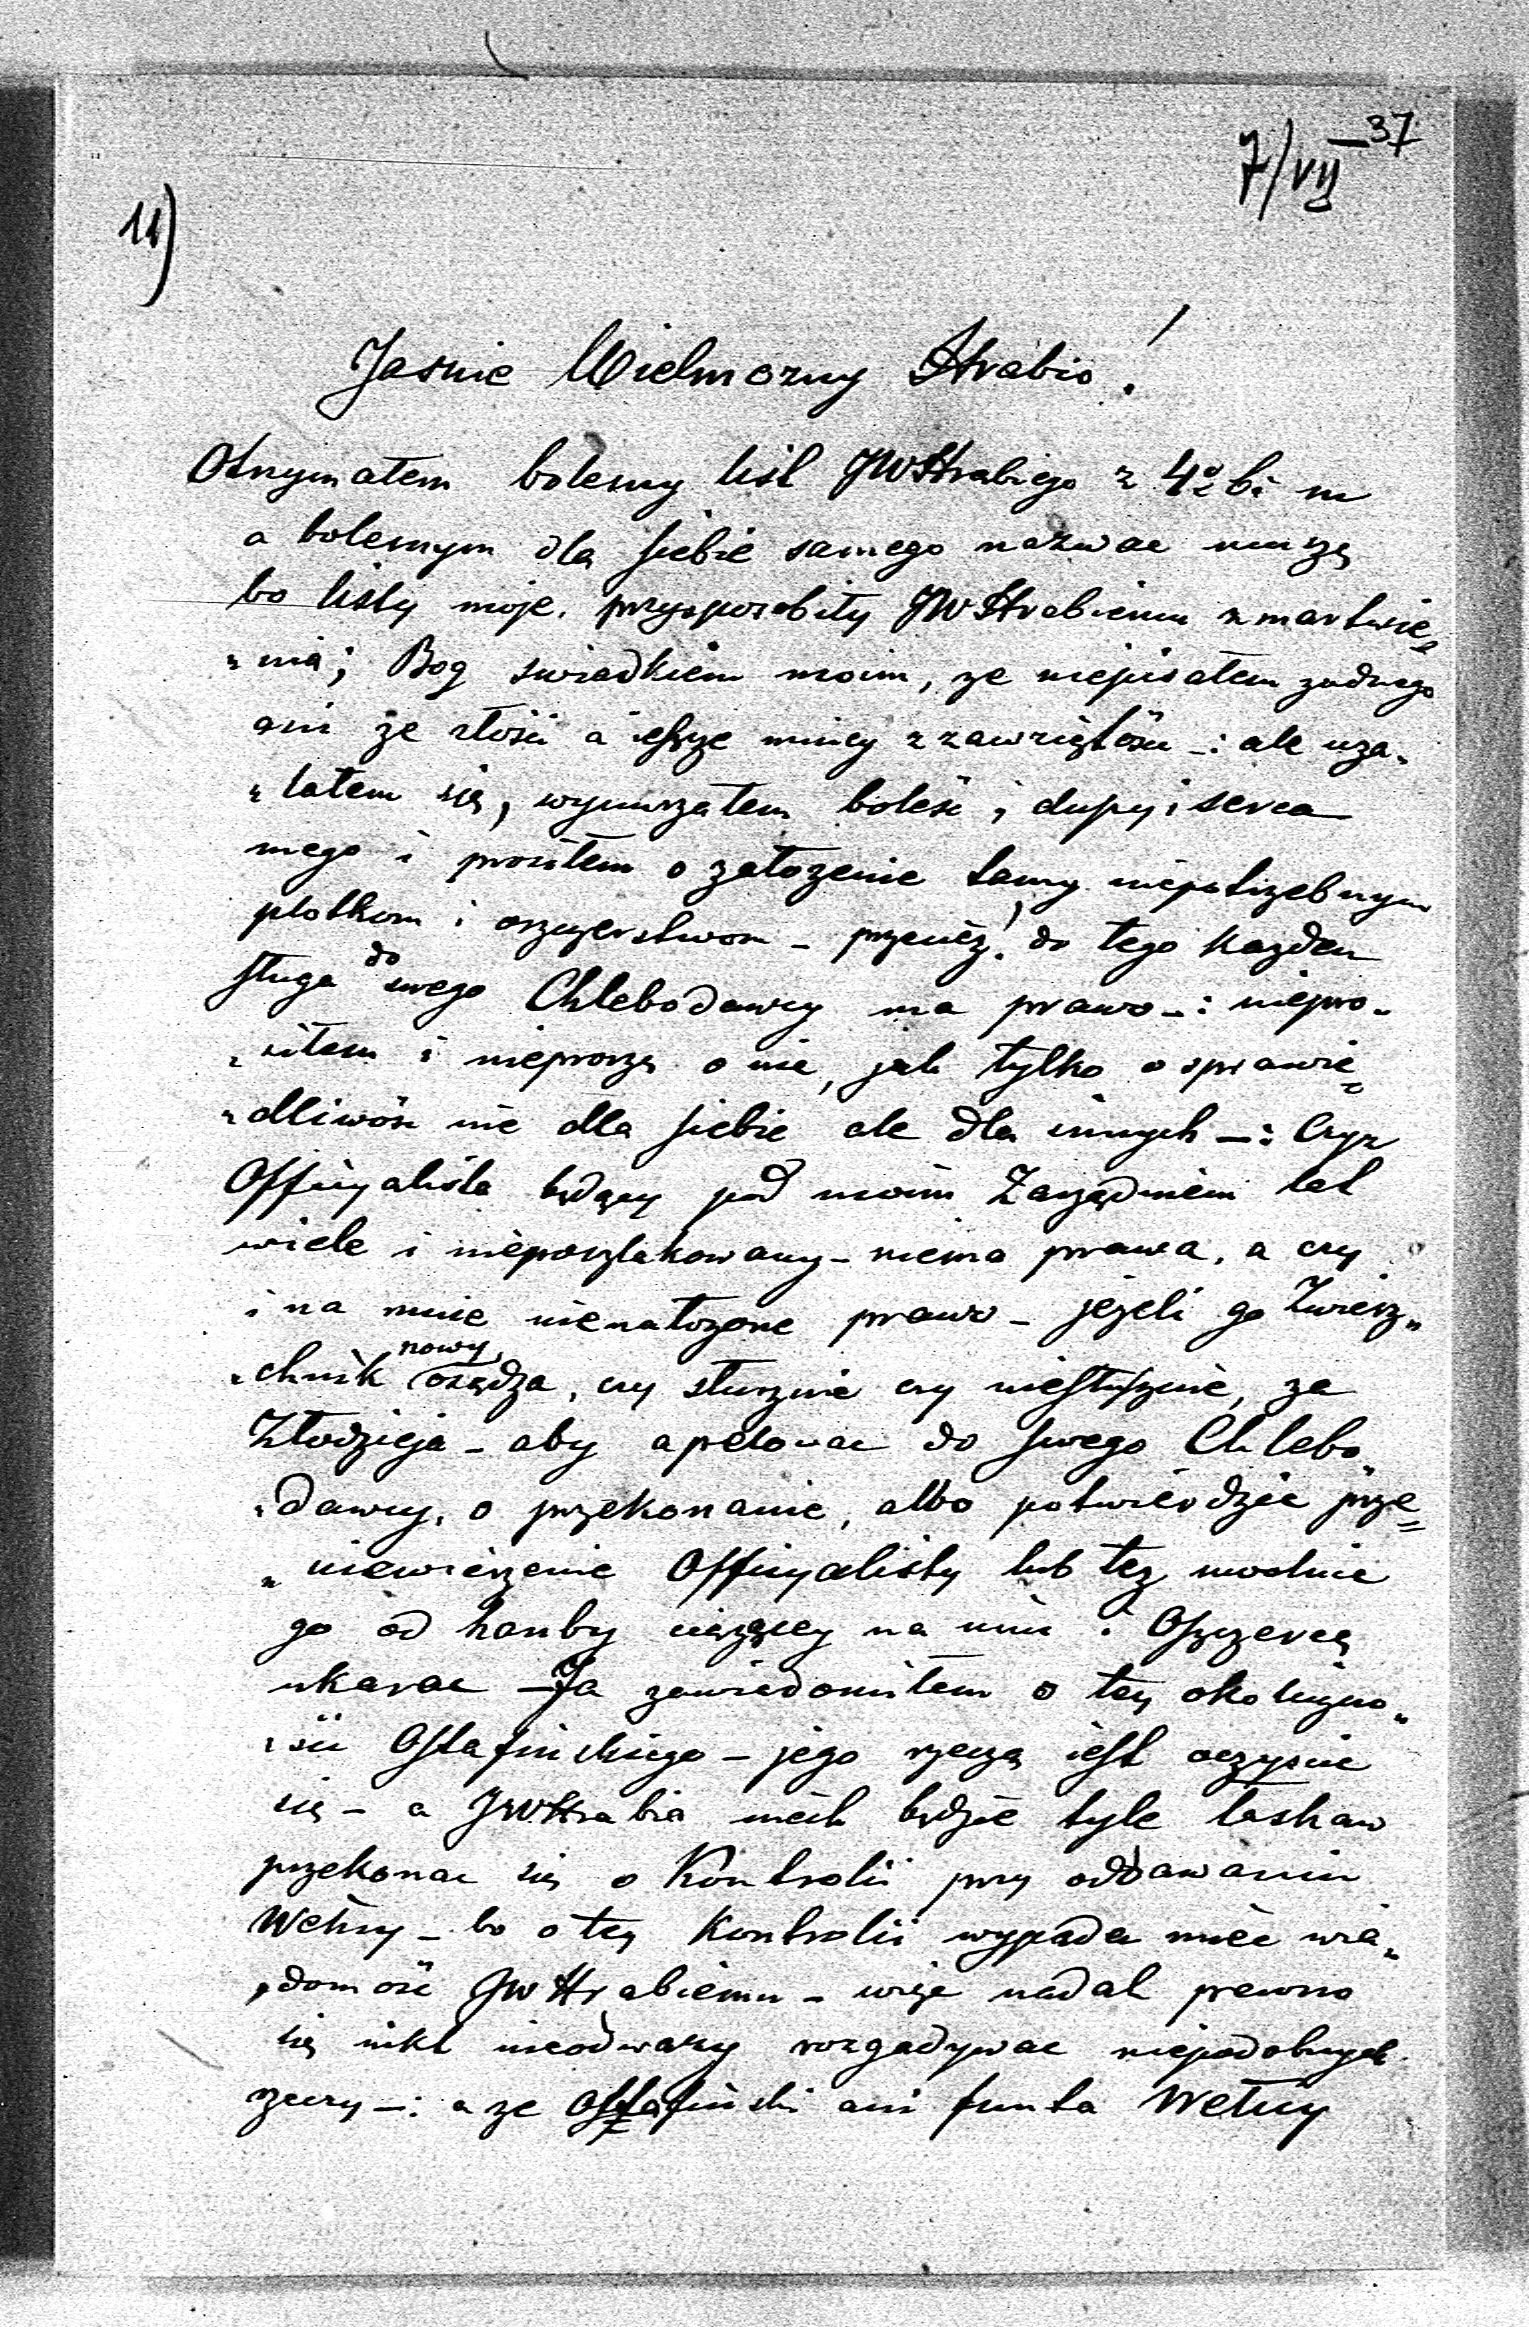 37
7/VII
11)
Jasnie Wielmozny Hrabio!
Otrzymałem bolesny list JWHrabiego z 4º bi m
a bolesnym dla siebie samego nazwac muszę
bo listy moje przysposobiły JWHrabiemu zmartwie„
„nia; Bog swiadkiem moim, ze niepisałem zadnego
ani ze złości a iessze mniey z zawziętósci -: ale uza„
„lałem się, wynurzałem boleść i duszy i serca
mego i prosiłem o założenie tamy niepotrzebnym
plotkom i oszczerstwom - przecież! do tego kazden
sługa do swego Chlebodawcy ma prawo -: niepro„
„siłem i nieproszę o nic, jak tylko o sprawie„
„dliwość nie dla siebie ale dla innych -: Czyz
Officyalista będący pod moim Zarządzniem lat
wiele i nieposzlakowany - niema prawa, a czy
i na mnie nienałozone prawo - jeżeli go Zwierz„
„chnik nowy osądza, czy słusznie czy niesłusznie, za
Złodzieja - aby apelowac do swego Chlebo„
„dawcy, o przekonanie, albo potwierdzic prze„
„niewierzenie Officyalisty lub tez uwolnic
go od hanby ciążącey na nim i Oszczercę
ukarac - Ja zawiadomiłem o tey okoliczno„
„sci Ostafinskiego - jego rzeczą iest oczyscic
się - a JWHrabia niech będzie tyle łaskaw
przekonac się o Kontrolii przy oddawaniu
Wełny - bo o tey Kontrolii wypada miec wia„
„domość JWHrabiemu - więc nadal pewno
się nikt nieodwazy rozgadywac niepodobnych
rzeczy -: a ze Ostafinski ani funta Wełny